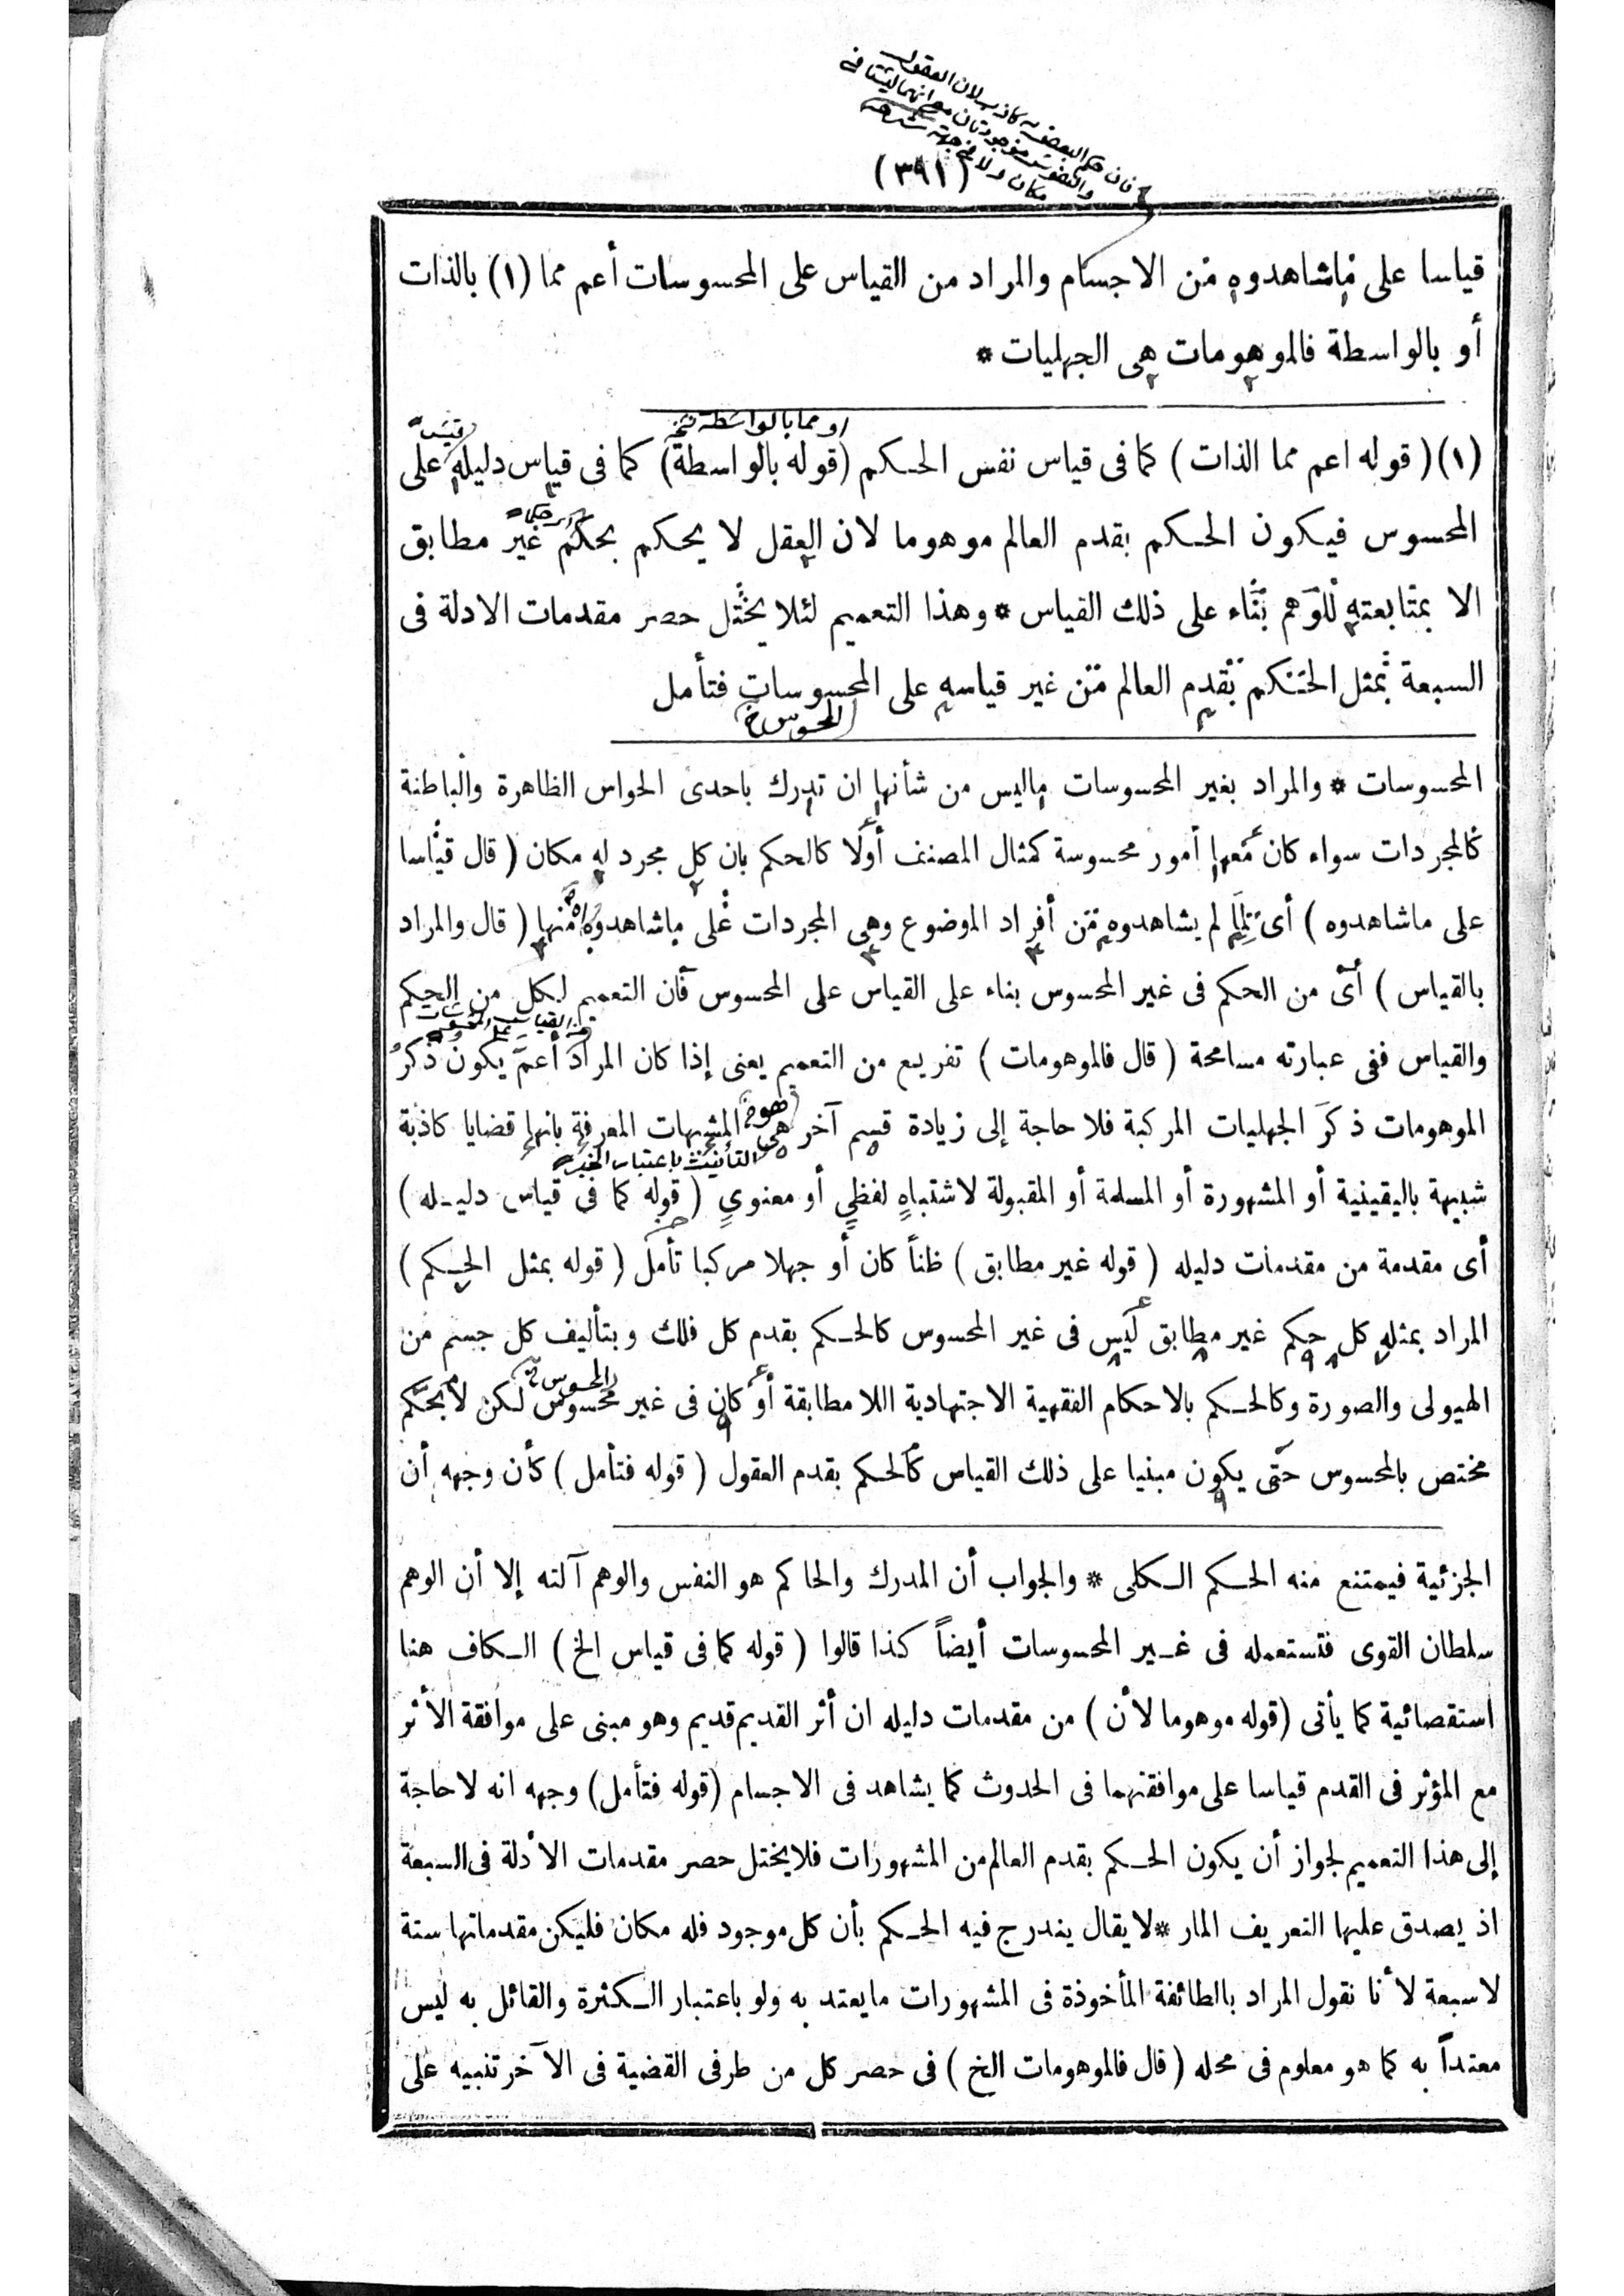 فان حكم البعض به كاذب لان العقول
والنفوس موجودتان مع انهما ليستا في
مكان ولا في جهة
(٣٩١)
قياسا على ماشاهدوه من الاجسام والمراد من القياس على المحسوسات أعم مما (١) بالذات
أو بالواسطة فالموهومات هى الجهليات *
او مما بالواسطة نخ
(١) ( قوله اعم مما الذات ) كما فى قياس نفس الحكم (قوله بالواسطة) كما فى قياس دليله على
المحسوس فيكون الحكم بقدم العالم موهوما لان العقل لا يحكم بحكم غير مطابق
الا بمتابعته للوهم بناء على ذلك القياس * وهذا التعميم لئلا يختل حصر مقدمات الادلة فى
السبعة بمثل الحكم بقدم العالم من غير قياسه على المحسوسات فتأمل
المحسوس خ
المحسوسات * والمراد بغير المحسوسات ماليس من شأنها ان تدرك باحدى الحواس الظاهرة والباطنة
كالمجردات سواء كان معها أمور محسوسة كمثال المصنف أولا كالحكم بان كل مجرد له مكان ( قال قياسا
على ماشاهدوه ) أى لما لم يشاهدوه من أفراد الموضوع وهى المجردات على ماشاهدوه منها ( قال والمراد
بالقياس ) أى من الحكم فى غير المحسوس بناء على القياس على المحسوس فان التعميم لكل من الحكم
والقياس ففى عبارته مسامحة ( قال فالموهومات ) تفريع من التعميم يعنى إذا كان المراد أعم يكون ذكر
الموهومات ذكر الجهليات المركبة فلا حاجة إلى زيادة قسم آخر هى المشبهات المعرفة بانها قضايا كاذبة
التأنيث باعتبار الخبر
شبيهة باليقينية أو المشهورة أو المسلمة أو المقبولة لاشتباه لفظي أو معنوي ( قوله كما فى قياس دليله )
أى مقدمة من مقدمات دليله ( قوله غير مطابق ) ظناً كان أو جهلا مركبا تأمل ( قوله بمثل الحكم )
المراد بمثله كل حكم غير مطابق ليس فى غير المحسوس كالحكم بقدم كل فلك وبتأليف كل جسم من
المحسوس
الهيولى والصورة وكالحكم بالاحكام الفقهية الاجتهادية اللا مطابقة أو كان فى غير محسوس لكن لا بحكم
مختص بالمحسوس حتى يكون مبنيا على ذلك القياس كالحكم بقدم العقول ( قوله فتأمل ) كأن وجهه أن
الجزئية فيمتنع منه الحكم الكلى * والجواب أن المدرك والحاكم هو النفس والوهم آلته إلا أن الوهم
سلطان القوى فتستعمله فى غير المحسوسات أيضاً كذا قالوا ( قوله كما فى قياس الخ ) الكاف هنا
استقصائية كما يأتى (قوله موهوما لأن ) من مقدمات دليله ان أثر القديم قديم وهو مبنى على موافقة الأثر
مع المؤثر فى القدم قياسا على موافقتهما فى الحدوث كما يشاهد فى الاجسام (قوله فتأمل) وجهه انه لا حاجة
إلى هذا التعميم لجواز أن يكون الحكم بقدم العالم من المشهورات فلا يختل حصر مقدمات الأدلة فى السبعة
اذ يصدق عليها التعريف المار * لا يقال يندرج فيه الحكم بأن كل موجود فله مكان فليكن مقدماتها ستة
لا سبعة لأنا نقول المراد بالطائفة المأخوذة فى المشهورات مايعتد به ولو باعتبار الكثرة والقائل به ليس
معتداً به كما هو معلوم فى محله ( قال فالموهومات الخ ) فى حصر كل من طرفى القضية فى الآخر تنبيه على